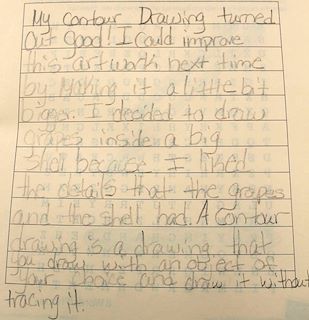 My contour Drawing turned
out good! I could improve
this artwork next time
by Making it a little bit
bigger. I decided to draw
grapes inside a big
shell because I liked
the details that the grapes
and the shell had. A Contour
drawing is a drawing that
you draw with an object of
your choice and draw it without
tracing it.